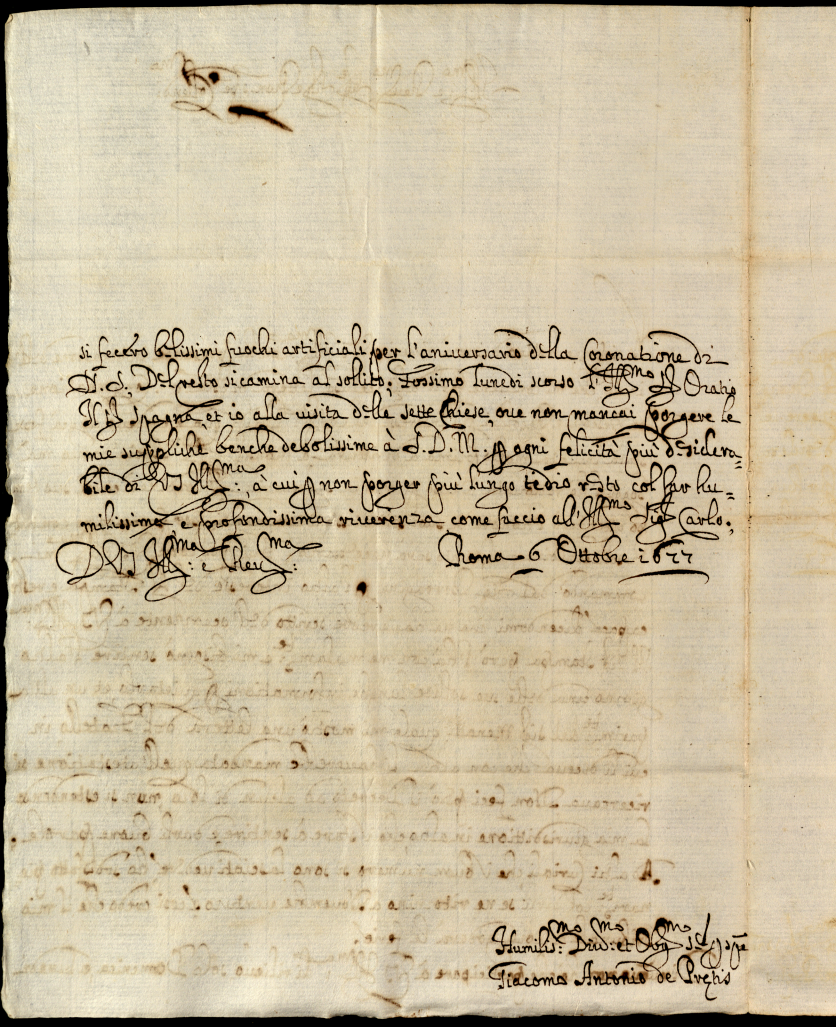 si fecero belissimi fuochi artificiali per l'aniuersario della Coronatione di
N. S., Del resto si camina al sollito; Fossimo lunedi scorso l'Ill.mo Sr Oratio
Il Sr Spagna, et io alla uisita delle sette Chiese, oue non mancai porgere le
mie suppliche benche debolissime à S. D. M. p ogni felicità più desidera=
bile di V.S. Ill.ma:, a cui p non porger più lungo tedio resto col far hu=
milissima, e profondissima riuerenza come faccio all'Ill.mo Sig.r Carlo;
D. V.S. Ill.ma: e Reu.ma: Roma 6 Ottobre 1677
Humilis.mo: Diu.mo: et Obg.mo
Giacomo Antonio de Pretis